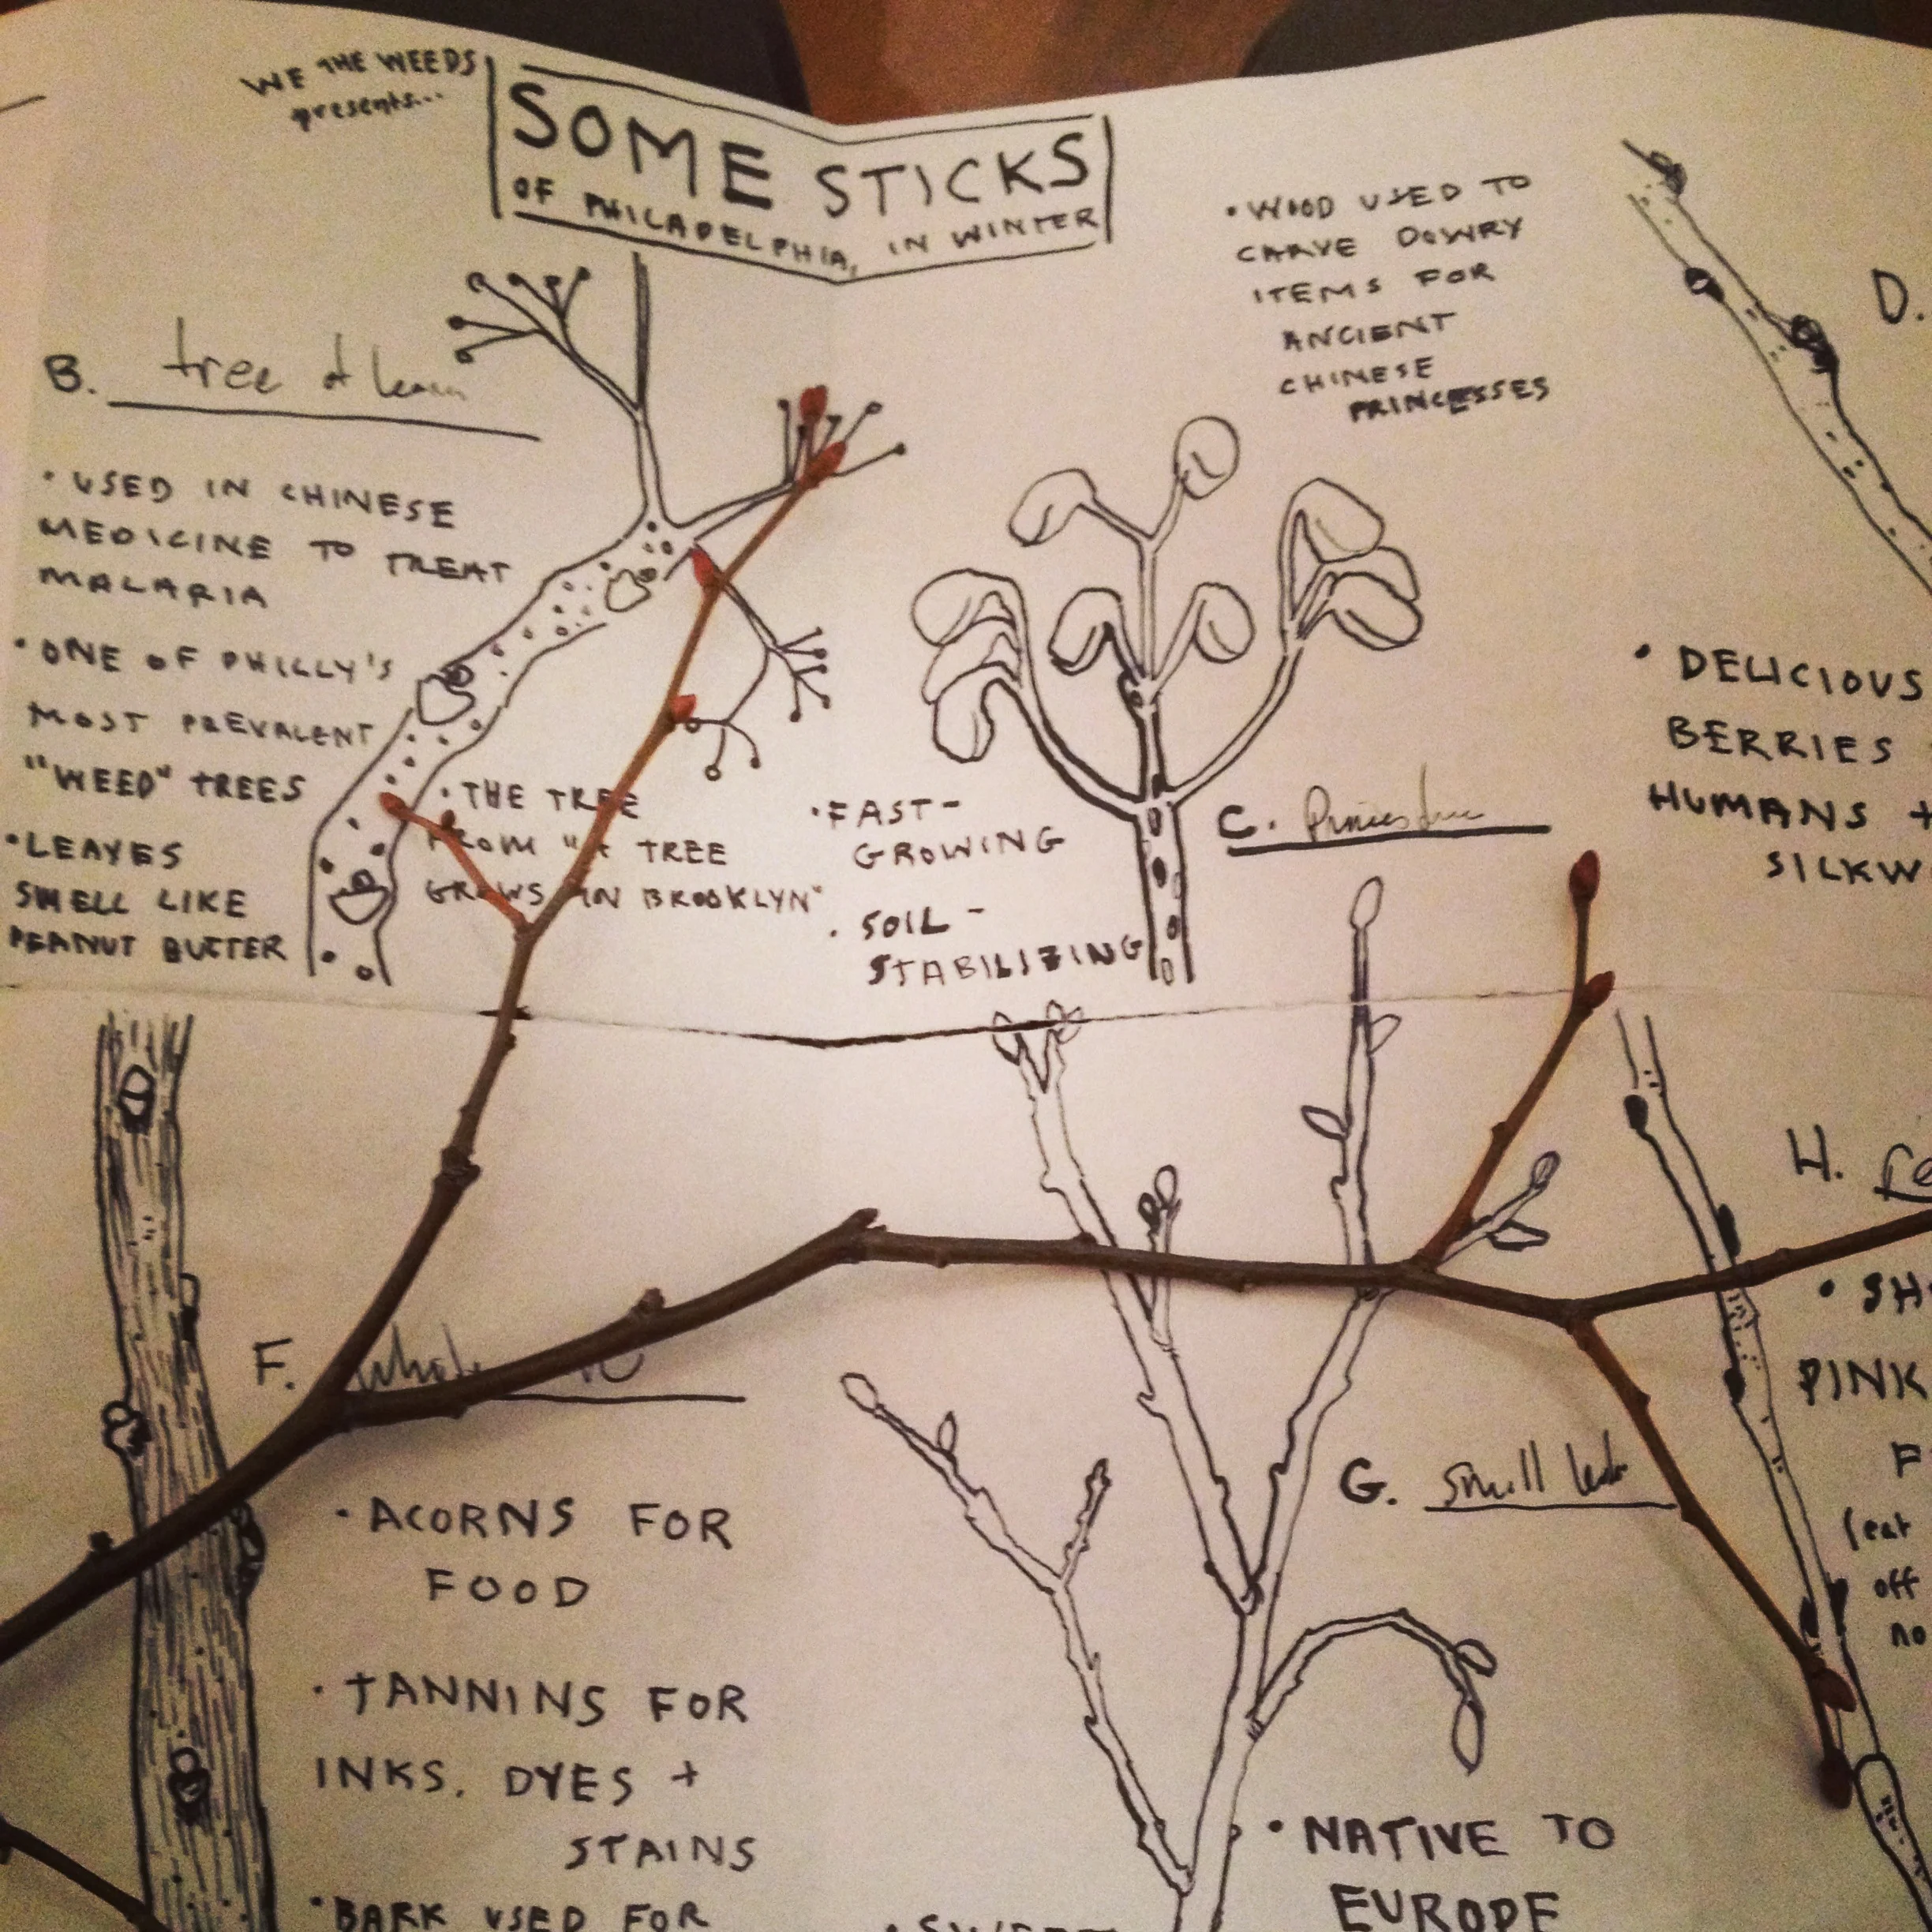 WE THE WEEDS
presents...
SOME STICKS
OF PHILADELPHIA, IN WINTER
B. tree of
• USED IN CHINESE
MEDICINE TO TREAT
MALARIA
• ONE OF PHILLY'S
MOST PREVALENT
"WEED" TREES
• LEAVES
SMELL LIKE
PEANUT BUTTER
• THE TREE
FROM "A TREE
GROWS IN BROOKLYN"
• WOOD USED TO
CARVE DOWRY
ITEMS FOR
ANCIENT
CHINESE
PRINCESSES
• FAST-
GROWING
• SOIL-
STABILIZING
C.
D.
• DELICIOUS
BERRIES
HUMANS +
SILKW
F.
• ACORNS FOR
FOOD
• TANNINS FOR
INKS, DYES +
STAINS
• BARK USED FOR
G. small
• NATIVE TO
EUROPE
• SWEET
H.
• SH
PINK
F
(eat
off
no